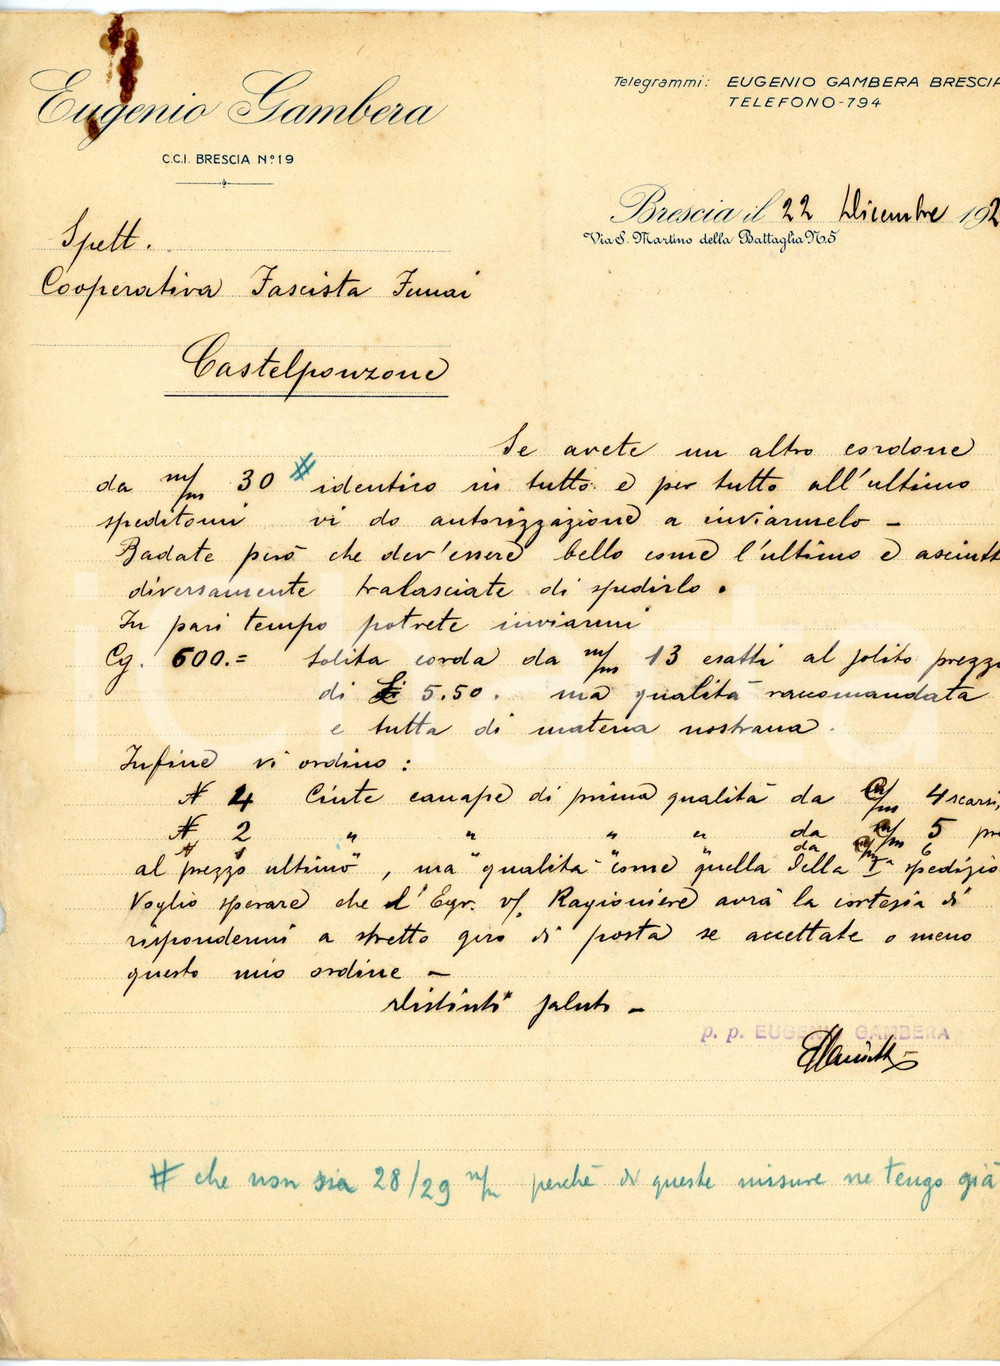 Eugenio Gambera
C.C.I. BRESCIA Nº19
Telegrammi: EUGENIO GAMBERA BRESCIA
TELEFONO-794
Brescia il 22 Dicembre 192
Via S. Martino della Battaglia N.5
Spett.
Cooperativa Fascista Funai
Castelponzone
Se avete un altro cordone
da m/m 30 # identico in tutto e per tutto all'ultimo
speditomi vi do autorizzazione a inviarmelo -
Badate però che dev'essere bello come l'ultimo e asciutt
diversamente tralasciate di spedirlo.
In pari tempo potrete inviarmi
Cg. 600.= solita corda da m/m 13 esatti al solito prezzo
di £ 5.50. ma qualità raccomandata
e tutta di materia nostrana.
Infine vi ordino:
N 4 Cinte canape di prima qualità da c/m 4 scarsi,
N 2 " " " " da c/m 5 pre
da c/m 6
al prezzo ultimo, ma qualità come quella della Iª spedizio
Voglio sperare che l'Egr. v/. Ragioniere avrà la cortesia di
rispondermi a stretto giro di posta se accettate o meno
questo mio ordine -
Distinti saluti -
p. p. EUGENIO GAMBERA
# che non sia 28/29 m/m perchè di queste missure ne tengo già